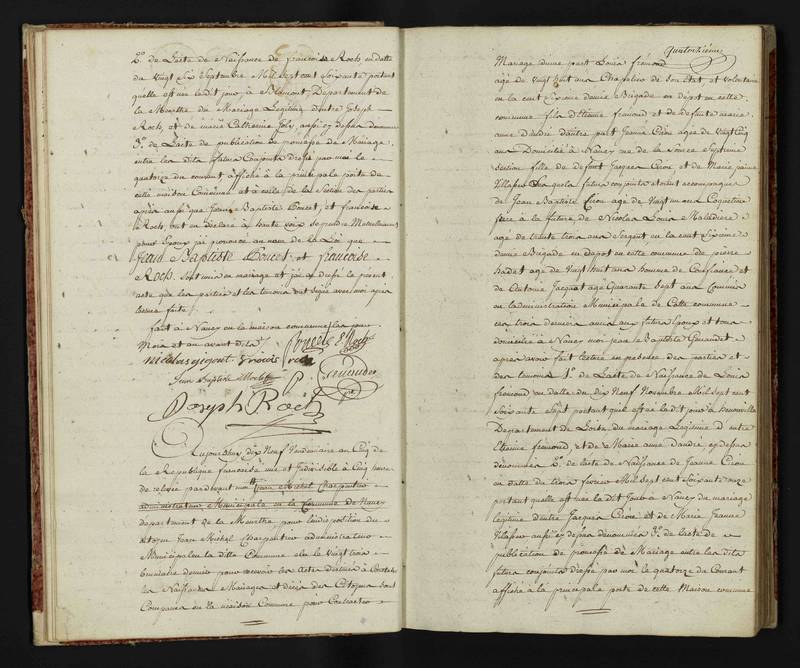 2.º de L'acte de Naissance de françoise Roch, en datte
du vingt Six Septembre Mil Sept cent Soixante portant
qu'elle est née ledit jour, à Blamont, Département de
la Meurthe du Mariage Légitime d'entre Joseph
Roch, et de marie Catherine Joly, aussi cy dessus denommés
3.º de L'acte de publication de promesse de Mariage,
entre les dits futurs Conjoints dressé par moi le
quatorze du courant affiché à la principale porte de
cette maison Commune et à celle de la Section des parties
après aussi que Jean Baptiste Poucet, et françoise
Roch, ont eu déclaré à haute voix se prendre Mutuellement
pour Epoux j'ai prononcé au nom de la Loi que
Jean Baptiste Poucet, et françoise
Roch, sont unis en mariage et j'ai dressé le présent
acte que les parties et les témoins ont signé avec moi après
lecture faite
fait à Nancy en la maison commune les jour
Mois et an avant dits
Joseph Roch
Aujourd'hui dix Neuf Vendemiaire an Cinq de
la République françoise une et Indivisible à Cinq heures
de relevée pardevant moi Jean Michel Charpentier
administrateur Municipal en la Commune de Nancy
departement de la Meurthe pour l'indisposition du
Citoyen Jean Michel Charpentier administrateur
Municipal en la ditte Commune élu le vingt trois
brumaire dernier pour recevoir les actes destinés à Constater
les Naissances Mariages et décès des Citoyens sont
Comparus en la maison Commune pour Contracter
Quatorzième
Mariage d'une part Louis frémond
agé de Vingt huit ans Chapelier de Son Etat et volontaire
en la cent Sixieme demie Brigade en dépot en cette
commune fils d'Etienne frémond et de defunte marie
anne d'andré d'autre part Jeanne Cron agée de Vingt Cinq
ans Domiciliée à Nancy rue de la Source Septieme
Section fille de defunt Jacques Cron, et de Marie Jeanne
lesquels futurs conjoints etoient accompagnés
de Jean Baptiste Cron agé de Vingt un ans Coquetier
frère à la future, de Nicolas Louis Maladiere
agé de trente trois ans Sergent en la cent Sixieme
demie Brigade en dépot en cette commune de pierre
hadet agé de Vingt huit ans homme de Confiance et
de Antoine Jacquot agé Quarante Sept ans Commis
en l'administration Municipale de Cette commune
ces trois derniers amis aux futurs Epoux et tous
domiciliés à Nancy moi jean Baptiste Genaudet
après avoir fait lecture en présence des parties et
des temoins 1.º de L'acte de Naissance de Louis
frémond en datte du dix Neuf Novembre Mil Sept cent
Soixante Sept portant qu'il est né ledit jour à
Département de Loise, du mariage Légitime d'entre
Etienne frémond et de Marie anne d'andré cy dessus
dénommés 2.º de l'acte de Naissance de Jeanne Cron
en datte du trois fevrier Mil Sept cent Soixante onze
portant quelle est née le dit Jour à Nancy du mariage
legitime d'entre Jacques Cron et de Marie Jeanne
aussi cy dessus dénommés 3.º de l'acte de
publication de promesse de Mariage entre les dits
futurs conjoints dressé par moi le quatorze du Courant
affiché à la principale porte de cette Maison commune